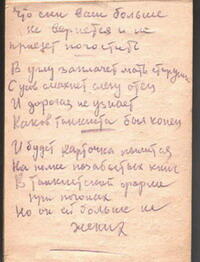 Что сын ваш больше
не вернется и не
приедет погостить
В углу заплачет мать старушка
Сусы смахнет слезу отец
И дорогая не узнает
Каков танкиста был конец
И будет карточка пылится
На полке позабытых книг
В танкистской форме
при погонах
Но он ей больше не
жених